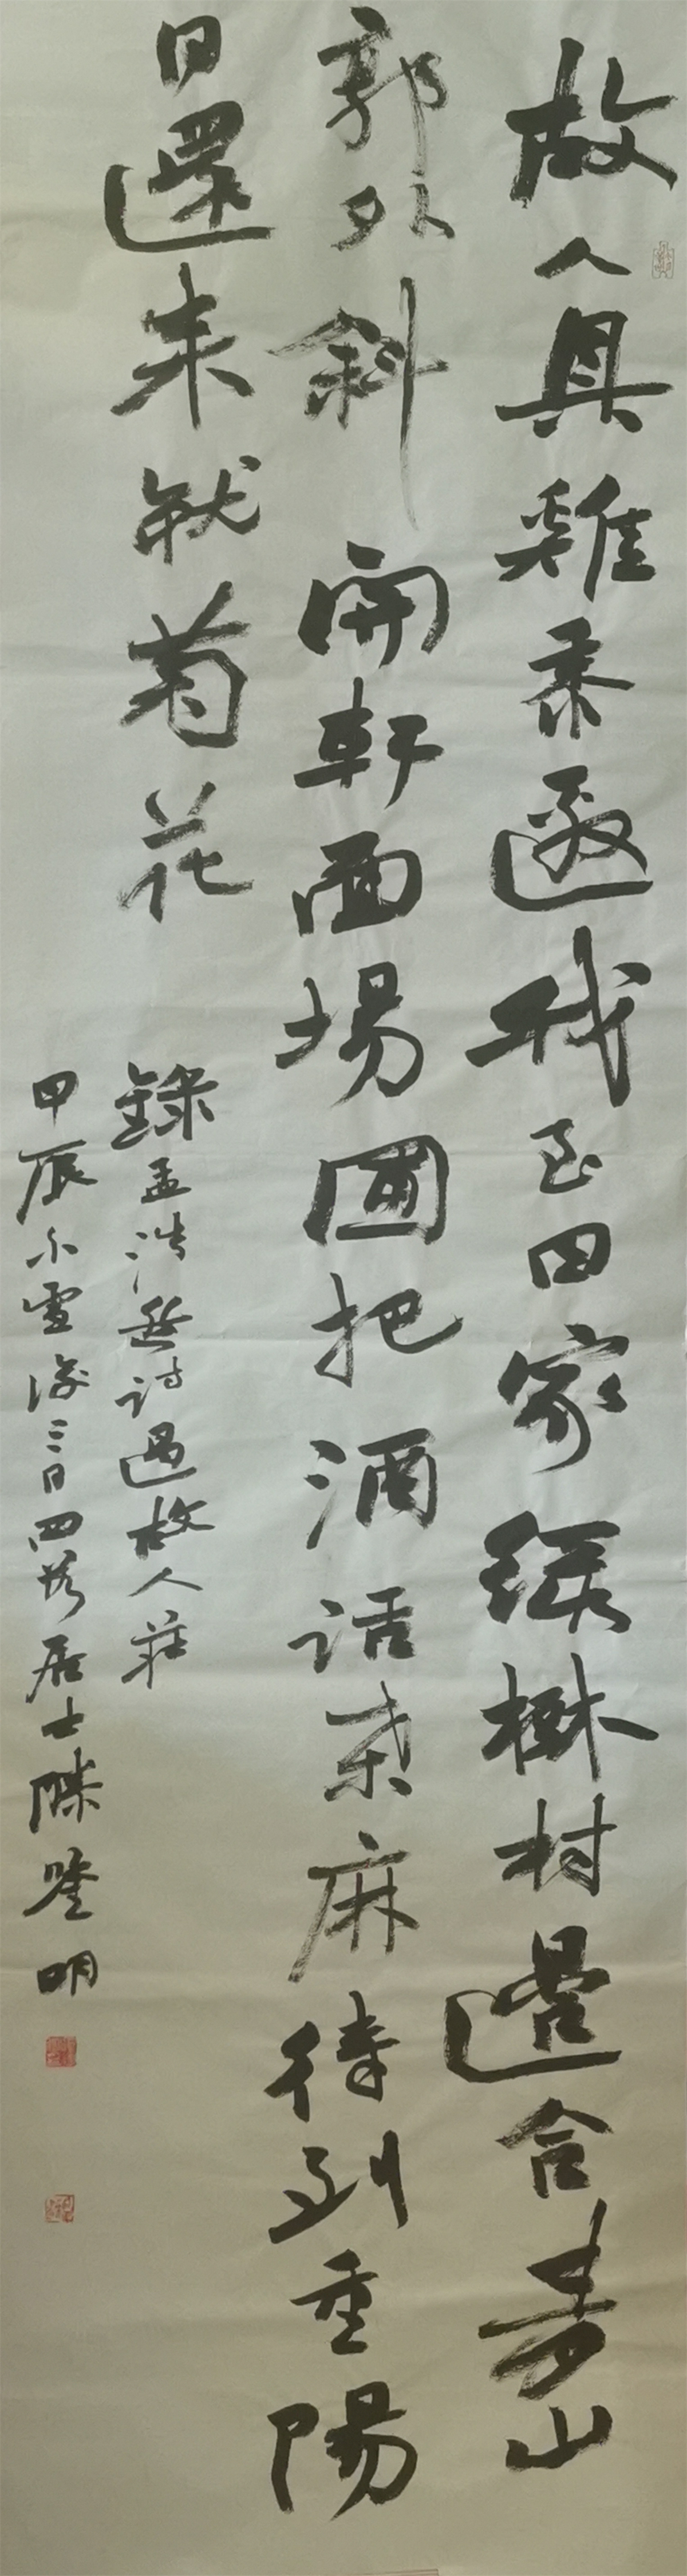 故人具雞黍邀我至田家緑樹村邊合青山
郭外斜開軒面場圃把酒話桑麻待到重陽
日還来就菊花
錄孟浩然詩過故人莊
甲辰小雪後三日四防居士滕登明